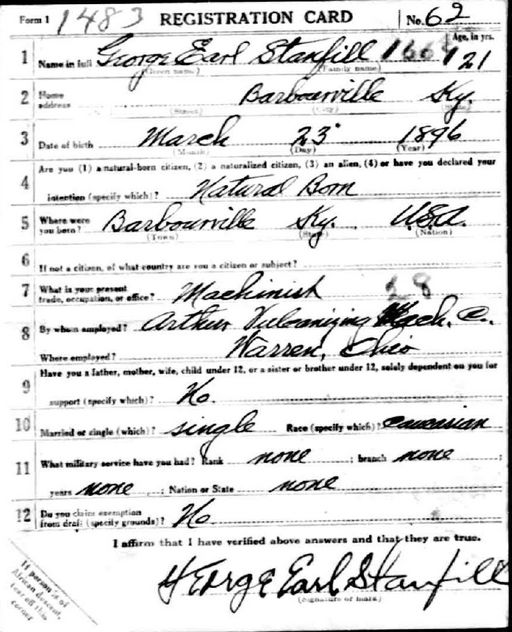 Form 1 1483 REGISTRATION CARD No. 62
1 Name in full George Earl Stanfill Age, in yrs. 21
(Given name) (Family name)
2 Home address Barbourville Ky.
(Street) (City) (State)
3 Date of birth March 23 1896
(Month) (Day) (Year)
4 Are you (1) a natural-born citizen, (2) a naturalized citizen, (3) an alien, (4) or have you declared your
intention (specify which)? Natural Born
5 Where were you born? Barbourville Ky. U.S.A.
(Town) (State) (Nation)
6 If not a citizen, of what country are you a citizen or subject?
7 What is your present trade, occupation, or office? Machinist 28
8 By whom employed? Arthur Vulcanizing Mach. C.
Where employed? Warren, Ohio
9 Have you a father, mother, wife, child under 12, or a sister or brother under 12, solely dependent on you for
support (specify which)? No.
10 Married or single (which)? single Race (specify which)? Caucasian
11 What military service have you had? Rank none ; branch none ;
years none ; Nation or State none
12 Do you claim exemption from draft (specify grounds)? No
I affirm that I have verified above answers and that they are true.
George Earl Stanfill
(Signature or mark)
If person is of
African descent,
tear off this
corner